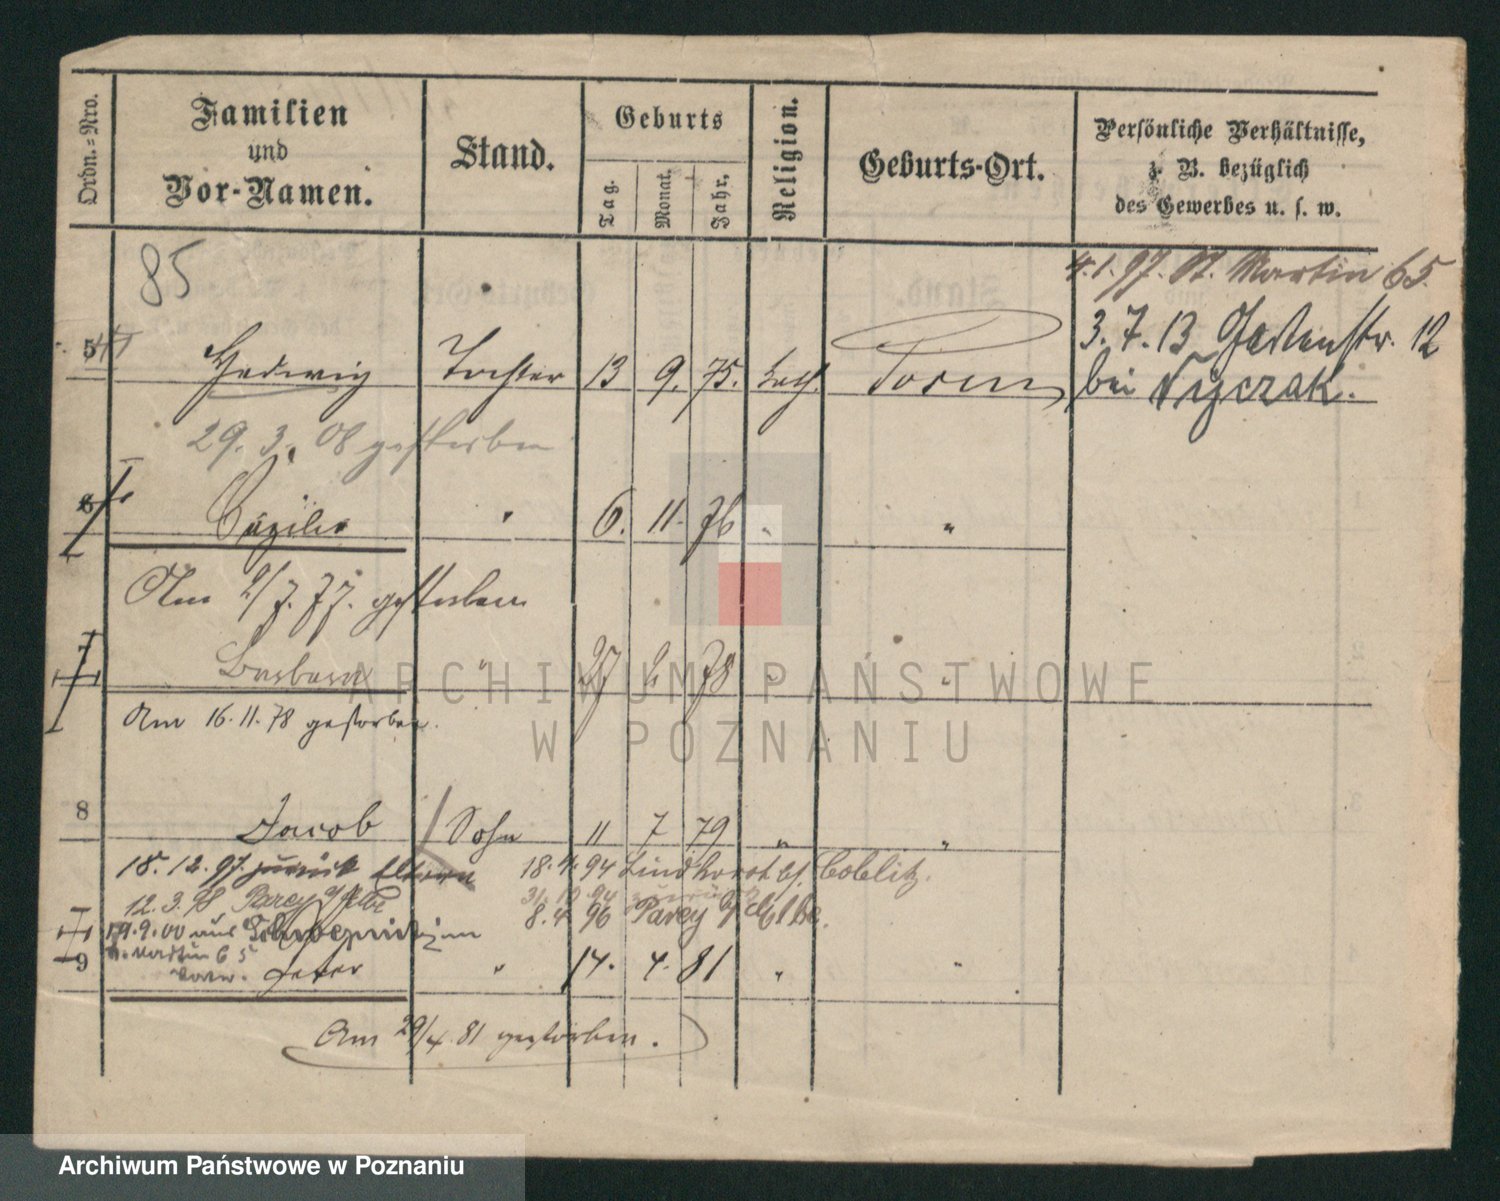 Ordn.=Nro.
Familien
und
Vor-Namen.
Stand.
Geburts
Tag.
Monat.
Jahr.
Religion.
Geburts-Ort.
Persönliche Verhältnisse,
z. B. bezüglich
des Gewerbes u. s. w.
85
4.1.97. St. Martin 65.
3.7.13 Gartenstr. 12
5 Hedwig Tochter 13 9. 75. kath. Posen
bei Nyczak.
29.3.08 gestorben
6 Cäzilie " 6. 11. 76 " "
Am 2/7.77. gestorben
7 Barbara " 27 2. 78 " "
Am 16.11.78 gestorben.
8 Jacob Sohn 11 7 79 " "
18.12.97. zurück Eltern 18.4.94 Lindhorst bei
12.3.98 Parey a/Elbe 31.12.94 zurück
8.4 96 Parey a/Elbe.
19.9.00 aus
St. Martin 65
9 Peter " 14. 4. 81 " "
Am 29/4.81 gestorben.
ARCHIWUM PAŃSTWOWE
W POZNANIU
Archiwum Państwowe w Poznaniu